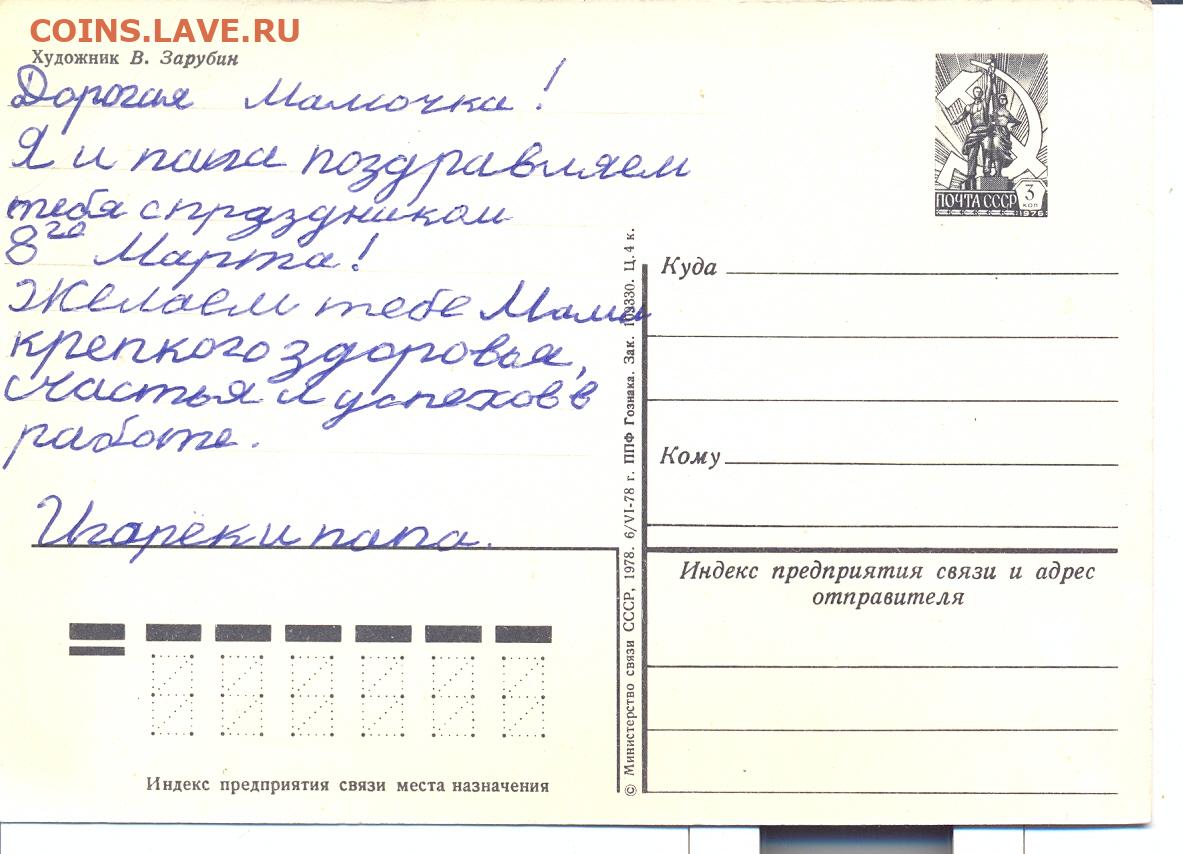 COINS.LAVE.RU
Художник В. Зарубин
Дорогая Мамочка!
Я и папа поздравляем
тебя с праздником
8го Марта!
Желаем тебе Мама
крепкого здоровья,
счастья и успехов в
работе.
Игарек и папа.
ПОЧТА СССР
3
КОП
1976
Куда
Кому
Индекс предприятия связи и адрес
отправителя
© Министерство связи СССР, 1978. 6/VI-78 г. ППФ Гознака. Зак. 109330. Ц. 4 к.
Индекс предприятия связи места назначения